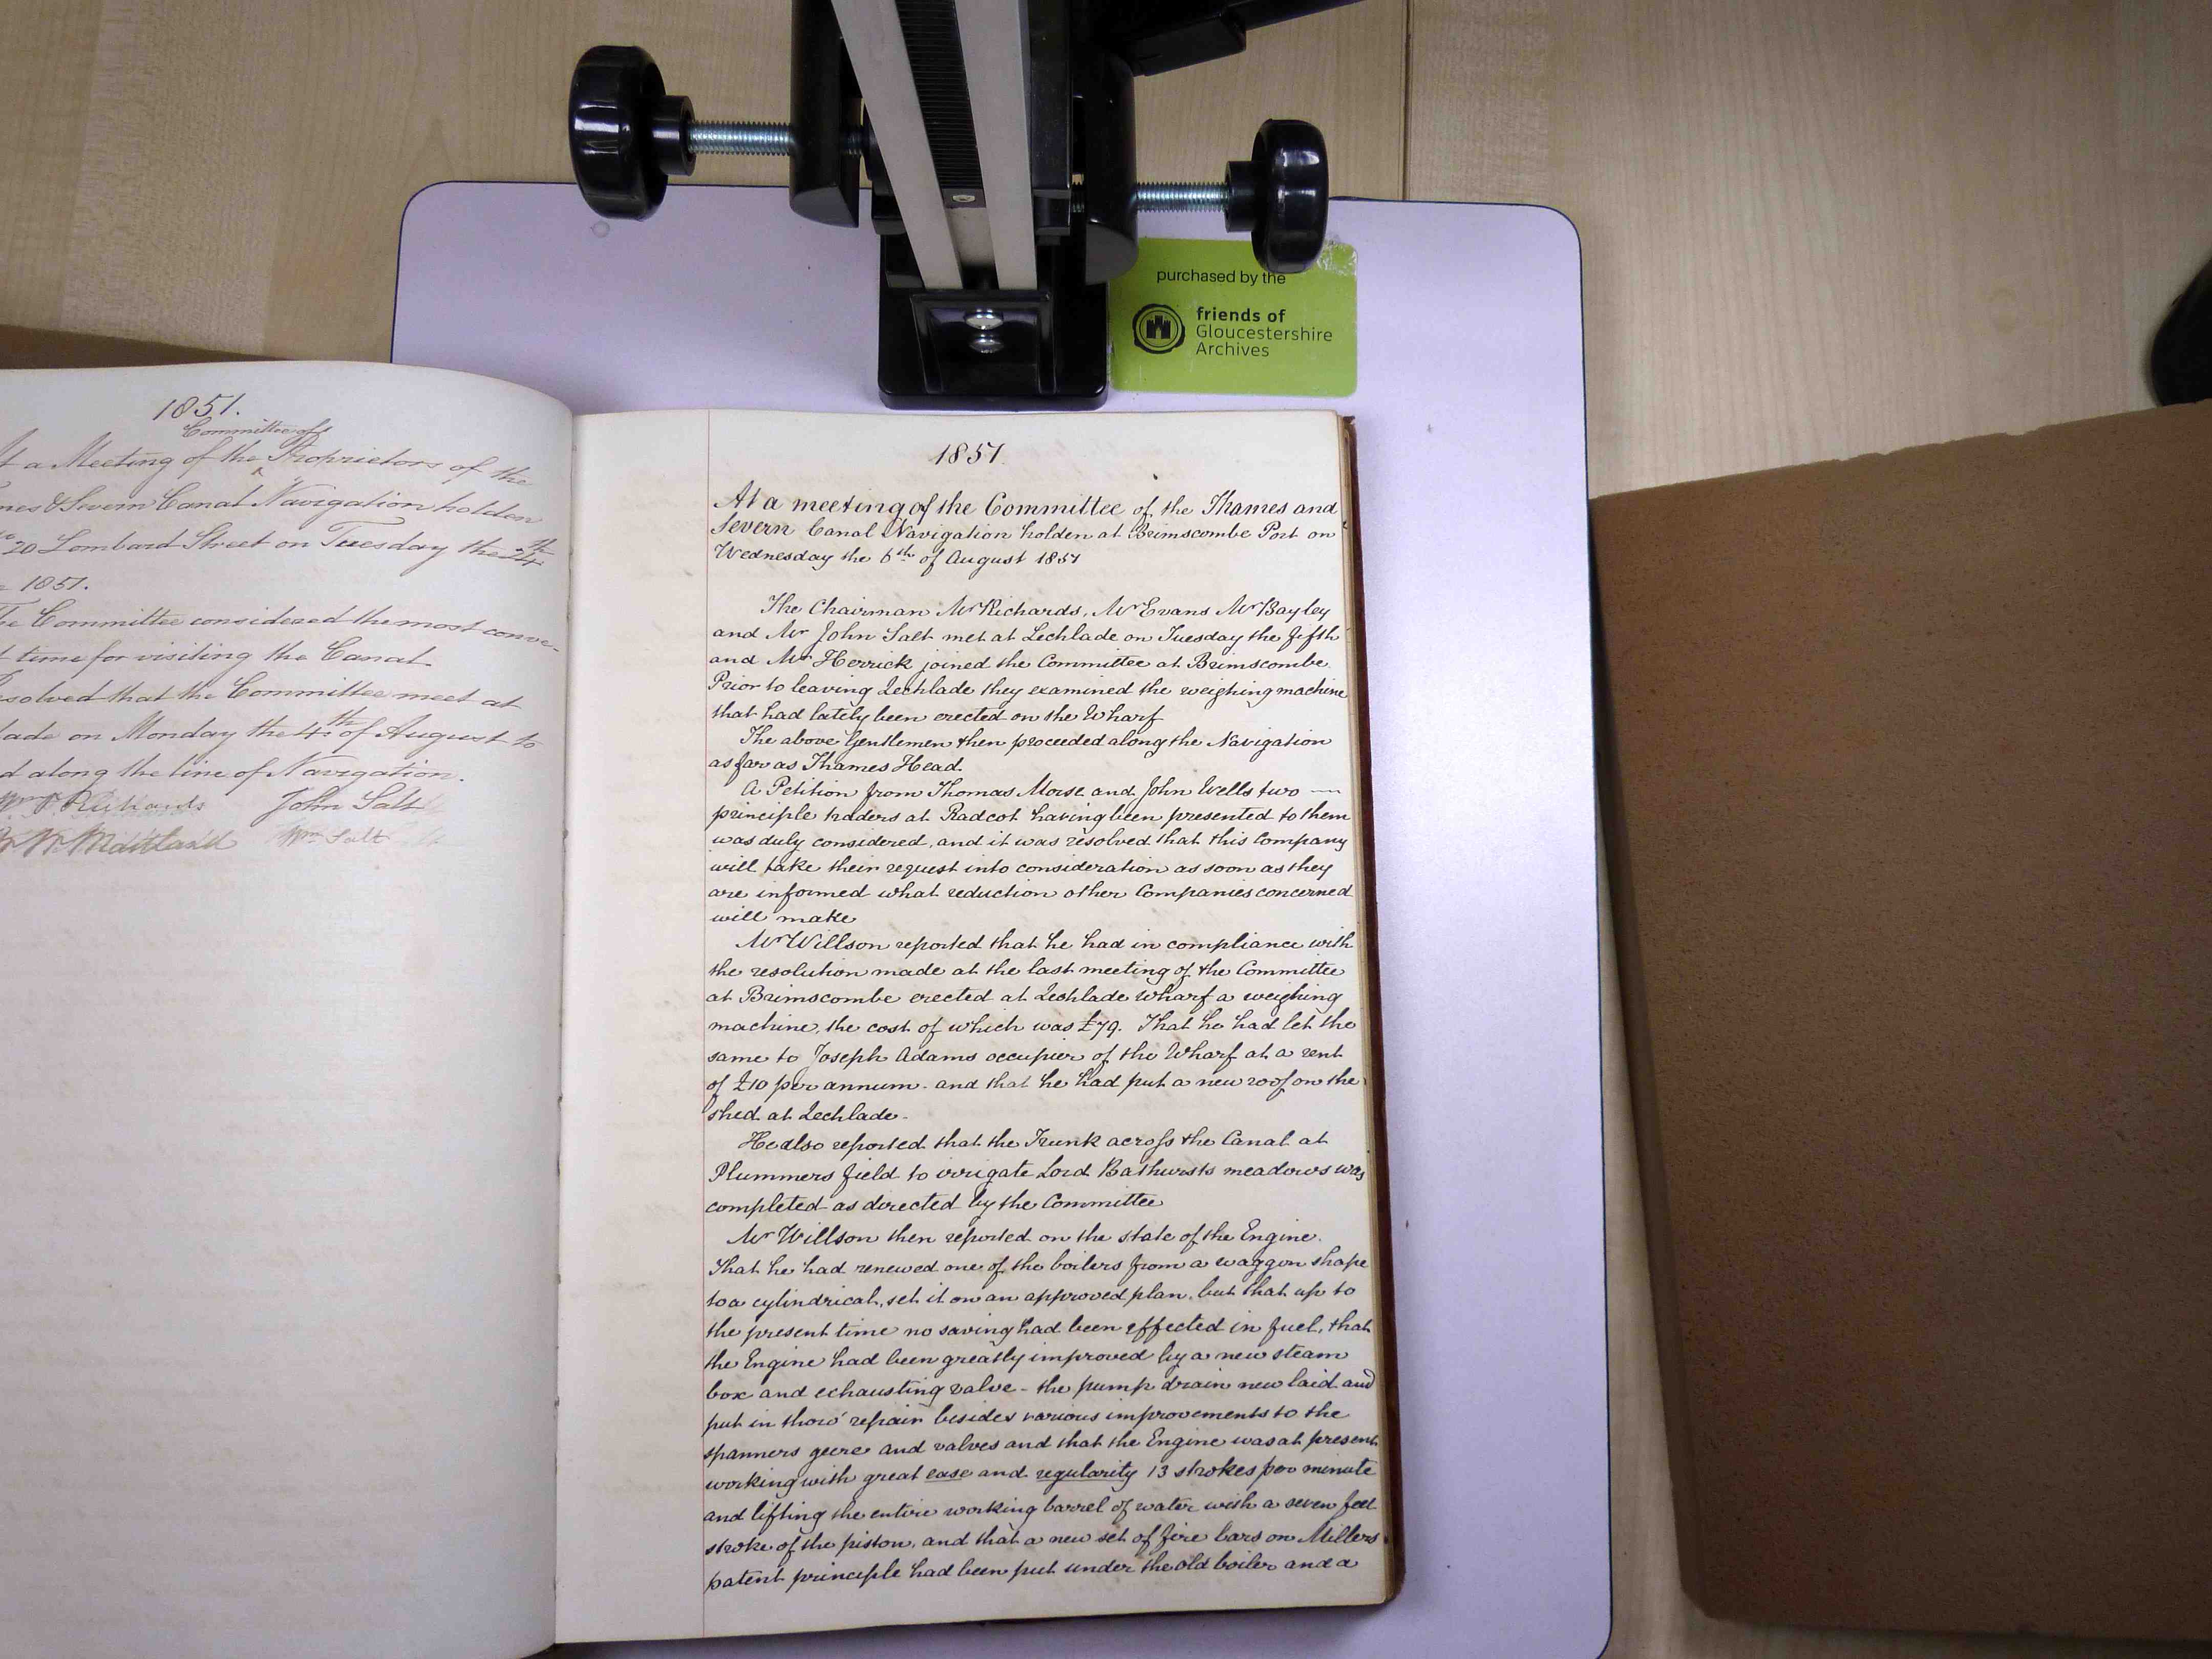 purchased by the
friends of
Gloucestershire
Archives
1851.
Committee of
t a Meeting of the Proprietors of the
mes & Severn Canal Navigation holden
20 Lombard Street on Tuesday the 24th
1851.
he Committee considered the most conve-
t time for visiting the Canal
esolved that the Committee meet at
lade on Monday the 4th of August to
d along the line of Navigation.
Richards John Salt
Maitland Wm Salt
1851.
At a meeting of the Committee of the Thames and
Severn Canal Navigation holden at Brimscombe Port on
Wednesday the 6th of August 1851
The Chairman Mr Richards, Mr Evans Mr Bayley
and Mr John Salt met at Lechlade on Tuesday the fifth
and Mr Herrick joined the Committee at Brimscombe.
Prior to leaving Lechlade they examined the weighing machine
that had lately been erected on the Wharf
The above Gentlemen then proceeded along the Navigation
as far as Thames Head.
A Petition from Thomas Morse and John Wells two —
principle traders at Radcot having been presented to them
was duly considered, and it was resolved that this Company
will take their request into consideration as soon as they
are informed what reduction other Companies concerned
will make
Mr Willson reported that he had in compliance with
the resolution made at the last meeting of the Committee
at Brimscombe erected at Lechlade Wharf a weighing
machine, the cost of which was £79. That he had let the
same to Joseph Adams occupier of the Wharf at a rent
of £10 per annum - and that he had put a new roof on the
shed at Lechlade -
He also reported that the Trunk across the Canal at
Plummers field to irrigate Lord Bathursts meadows was
completed as directed by the Committee
Mr Willson then reported on the state of the Engine.
That he had renewed one of the boilers from a waggon shape
to a cylindrical, set it on an approved plan, but that up to
the present time no saving had been effected in fuel, that
the Engine had been greatly improved by a new steam
box and echausting valve - the pump drain new laid and
put in thoro' repair besides various improvements to the
spanners geere and valves and that the Engine was at present
working with great ease and regularity 13 strokes per minute
and lifting the entire working barrel of water with a seven feet
stroke of the piston, and that a new set of fire bars on Millers
patent principle had been put under the old boiler and a